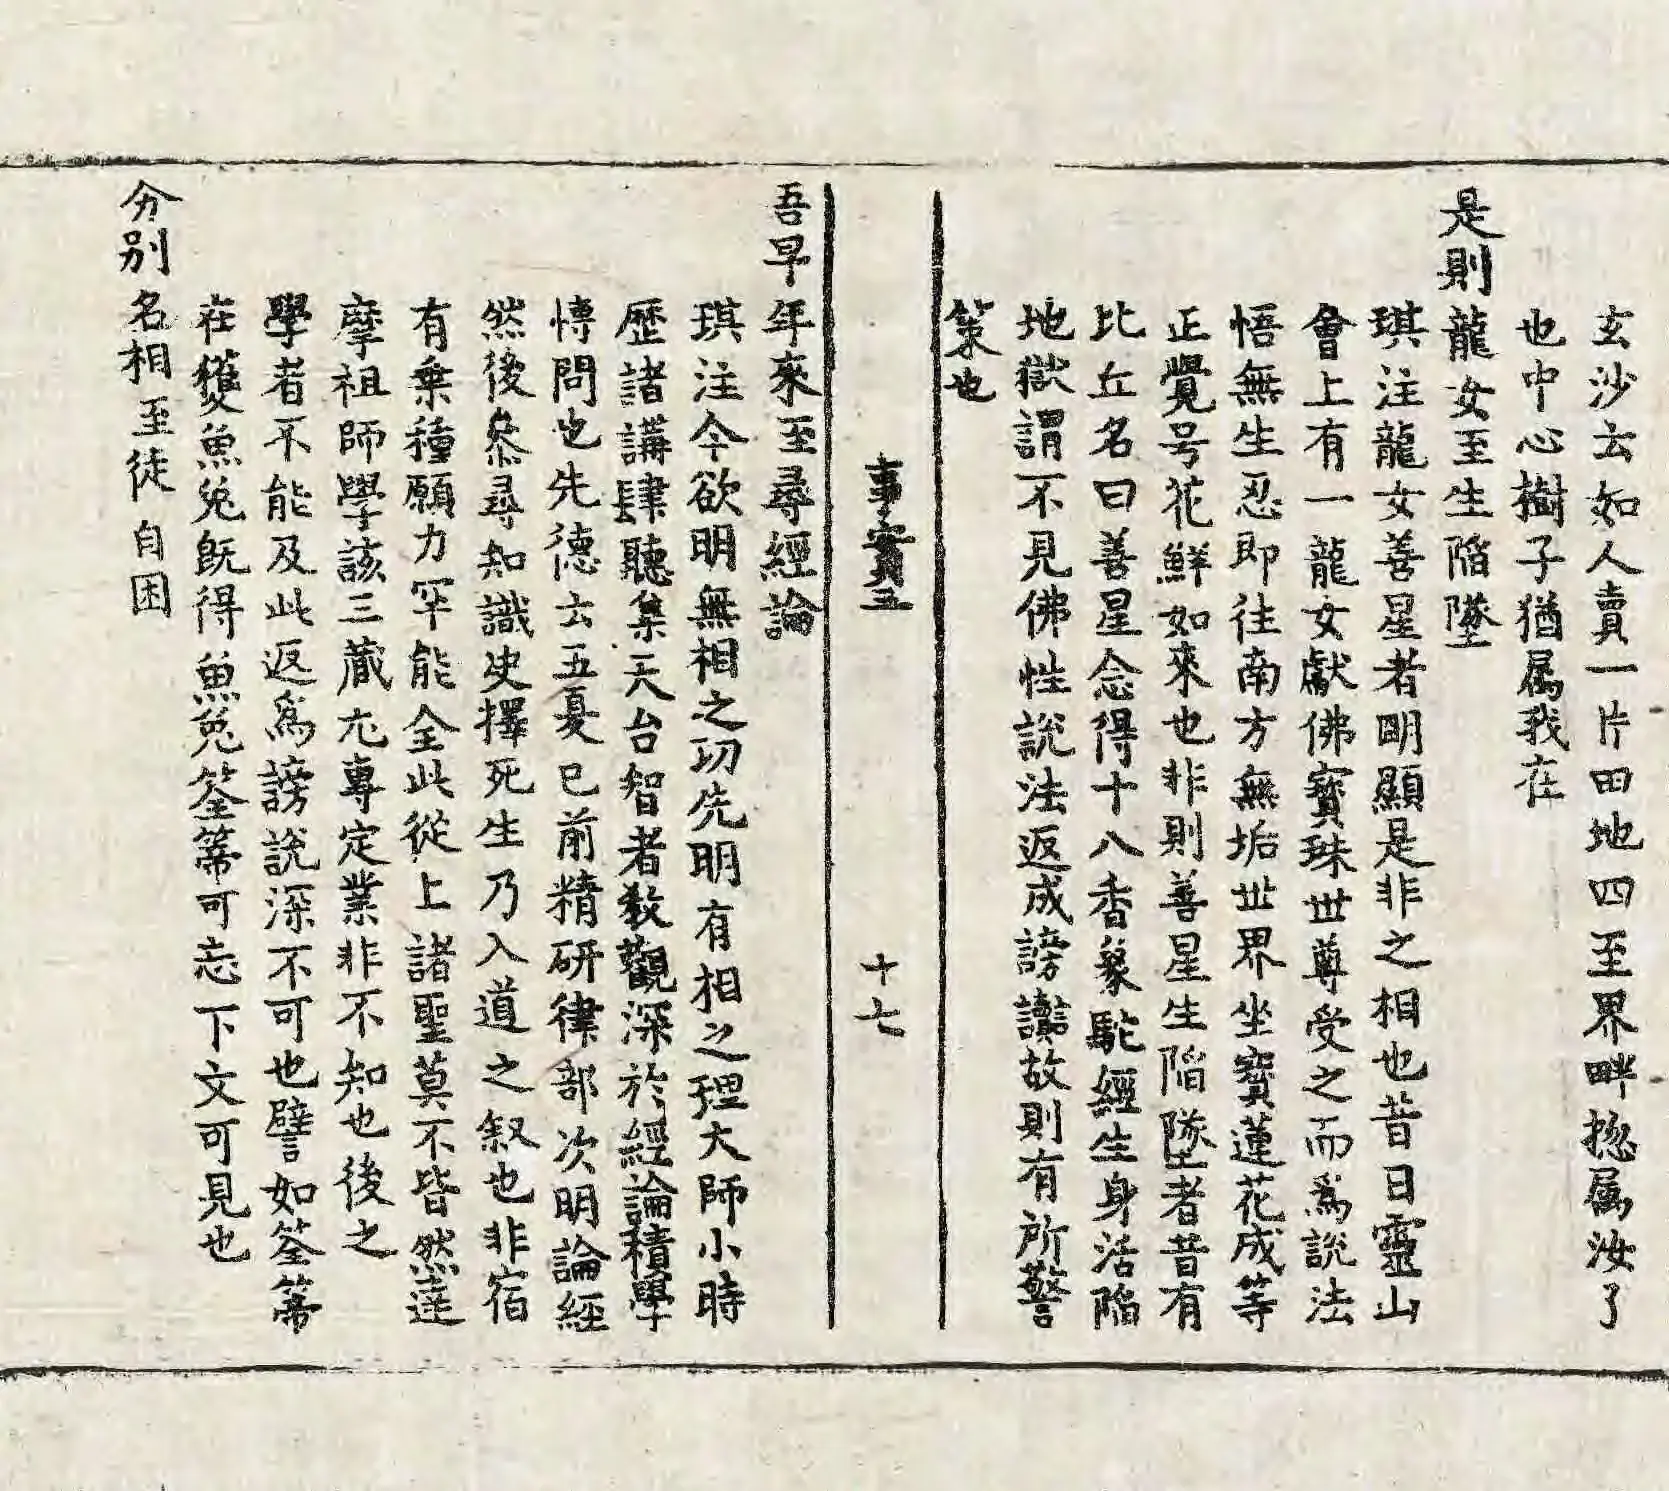 玄沙云如人賣一片田地四至界畔㧾属汝了
也中心樹子猶属我在
是則龍女至生陷墜
琪注龍女善星者明顯是非之相也昔日靈山
會上有一龍女獻佛寳珠丗尊受之而爲說法
悟無生忍即往南方無垢丗界坐寳蓮花成等
正覺号花鮮如來也非則善星生陷墜者昔有
比丘名曰善星念得十八香象駝經生身活陷
地獄謂不見佛性說法返成謗讟故則有所警
策也
事實五 十七
吾早年來至尋經論
琪注今欲明無相之功先明有相之理大師小時
歷諸講肆聽集天台智者教觀深於經論積學
愽問也先德云五夏已前精研律部次明論經
然後叅尋知識决擇死生乃入道之叙也非宿
有乗種願力罕能全此從上諸聖莫不皆然達
摩祖師學該三藏尤專定業非不知也後之
學者不能及此返爲謗說深不可也譬如筌箄
在𫉬魚兔旣得魚兔筌箄可忘下文可見也
分别名相至徒自困